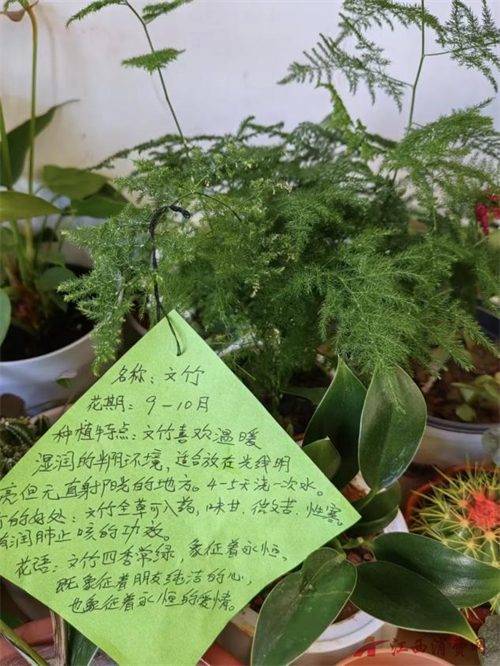 名称：文竹
花期：9－10月
种植特点：文竹喜欢温暖
湿润的半阴环境，适合放在光线明
亮但无直射阳光的地方。4-5天浇一次水。
的好处：文竹全草可入药，味甘、微苦、性寒。
润肺止咳的功效。
花语：文竹四季常绿，象征着永恒，
既象征着朋友纯洁的心，
也象征着永恒的爱情。
江西消费网